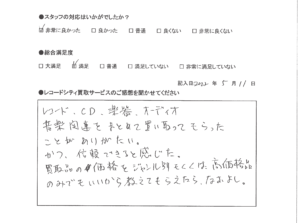 ●スタッフの対応はいかがでしたか?
☑非常に良かった □良かった □普通 □良くない □非常に良くない
●総合満足度
□大満足 ☑満足 □普通 □満足していない □非常に満足していない
記入日2022年 5月 11日
●レコードシティ買取サービスのご感想を聞かせてください
レコード、CD、楽器、オーディオ
音楽関連をまとめて買い取ってもらった
ことがありがたい。
かつ、信頼できると感じた。
買取品の価格をジャンル別もしくは、高価格品
のみでもいいから教えてもらえたら、なおよし。